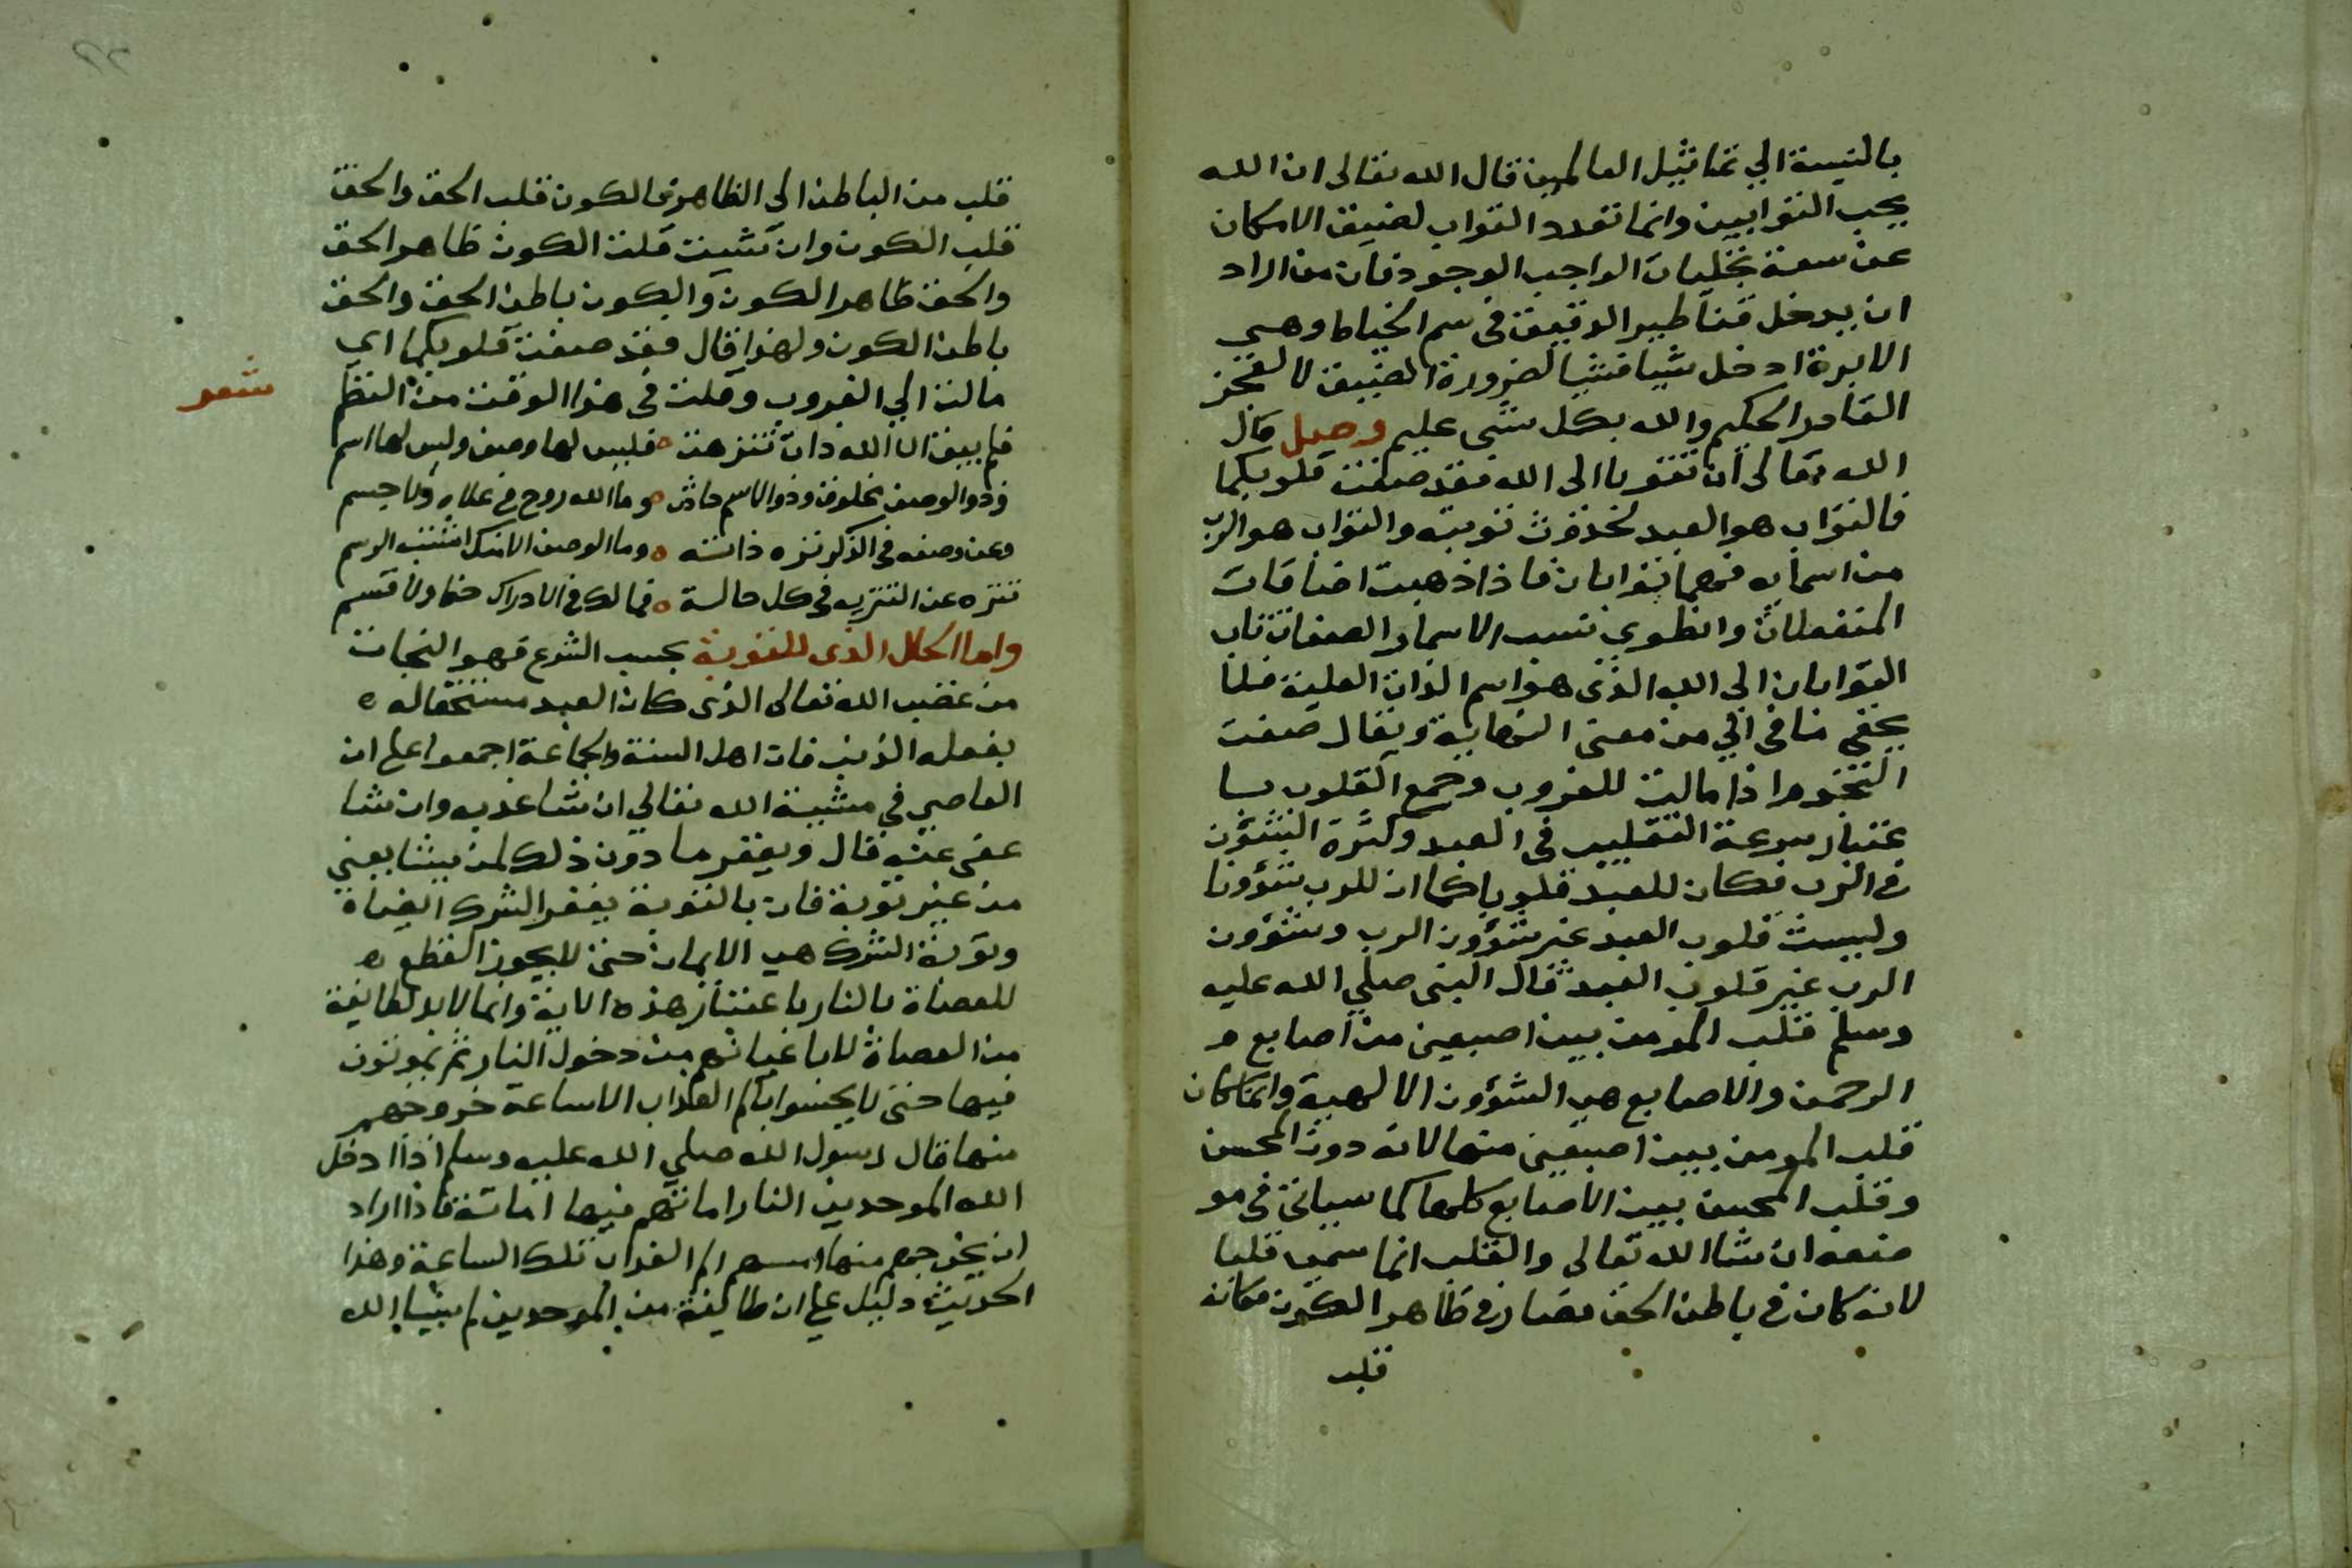 بالنسبة الي تماثيل العالمين قال الله تعالى ان الله
يحب التوابين وانما تعدد التواب لضيق الامكان
عن سعة تجليات الواجب الوجود فان من اراد
ان يدخل قناطير الدقيق في سم الخياط وهي
الابرة ادخل شيا فشيا لضرورة الضيق لا لعجز
القادر الحكيم والله بكل شي عليم وصل قال
الله تعالى ان تتوبا الى الله فقد صغت قلوبكما
فالتواب هو العبد لحدوث توبته والتواب هو الرب
من اسمايه فهما توابان فاذا ذهبت اضافات
المنفعلات وانطوي نسب الاسما والصفات تاب
التوابان الي الله الذي هو اسم الذات العلية فلا
يخفى ما في الي من معنى النهاية ويقال صغت
النجوم اذا مالت للغروب وجمع القلوب با
عتبار سرعة التقليب في العبد وكثرة الشؤن
في الرب فكان للعبد قلوبا كما ان للرب شؤونا
وليست قلوب العبد غير شؤون الرب وشؤون
الرب غير قلوب العبد قال النبى صلي الله عليه
وسلم قلب المومن بين اصبعين من اصابع
الرحمن والاصابع هي الشؤون الالهية وانما كان
قلب المومن بين اصبعين منها لانه دون المحسن
وقلب المحسن بين الاصابع كلها كما سياتى في مو
ضعه ان شا الله تعالى والقلب انما سمي قلبا
لانه كان في باطن الحق فصار في ظاهر الكون فكانه
قلب
قلب من الباطن الي الظاهر فالكون قلب الحق والحق
قلب الكون وان شيت قلت الكون ظاهر الحق
والحق ظاهر الكون والكون باطن الحق والحق
باطن الكون ولهذا قال فقد صغت قلوبكما اي
مالت الي الغروب وقلت في هذا الوقت من النظم
شعر
فلم يبق الا الله ذات تنزهت ه فليس لها وصف وليس لها اسم
فذو الوصف مخلوق وذو الاسم حادث ه وما الله روح في علاه ولا جسم
وعن وصفه في الذكر نزه ذاته ه وما الوصف الا منك اثبته الرسم
تنزه عن التنزيه في كل حالة ه فمالك في الادراك حظ ولا قسم
واما الحال الذي للتوبة بحسب الشرع فهو النجات
من غضب الله تعالى الذي كان العبد مستحقا له ه
بفعله الذنب فان اهل السنة والجماعة اجمعوا على ان
العاصي في مشيية الله تعالي ان شا عذبه وان شا
عفى عنه قال ويغفر ما دون ذلك لمن يشا يعني
من غير توبة فان بالتوبة يغفر الشرك ايضا ه
وتوبة الشرك هي الايمان حتى لا يجوز القطع ه
للعصاة بالنار باعتبار هذه الاية وانما لابد لطايفة
من العصاة لا باعيانهم من دخول النار ثم يموتون
فيها حتى لا يحسوا بالم العذاب الا ساعة خروجهم
منها قال رسول الله صلي الله عليه وسلم اذا ادخل
الله الموحدين النار اماتهم فيها اماتة فاذا اراد
ان يخرجهم منها امسهم الم العذاب تلك الساعة وهذا
الحديث دليل على ان طايفة من الموحدين لم يشا الله